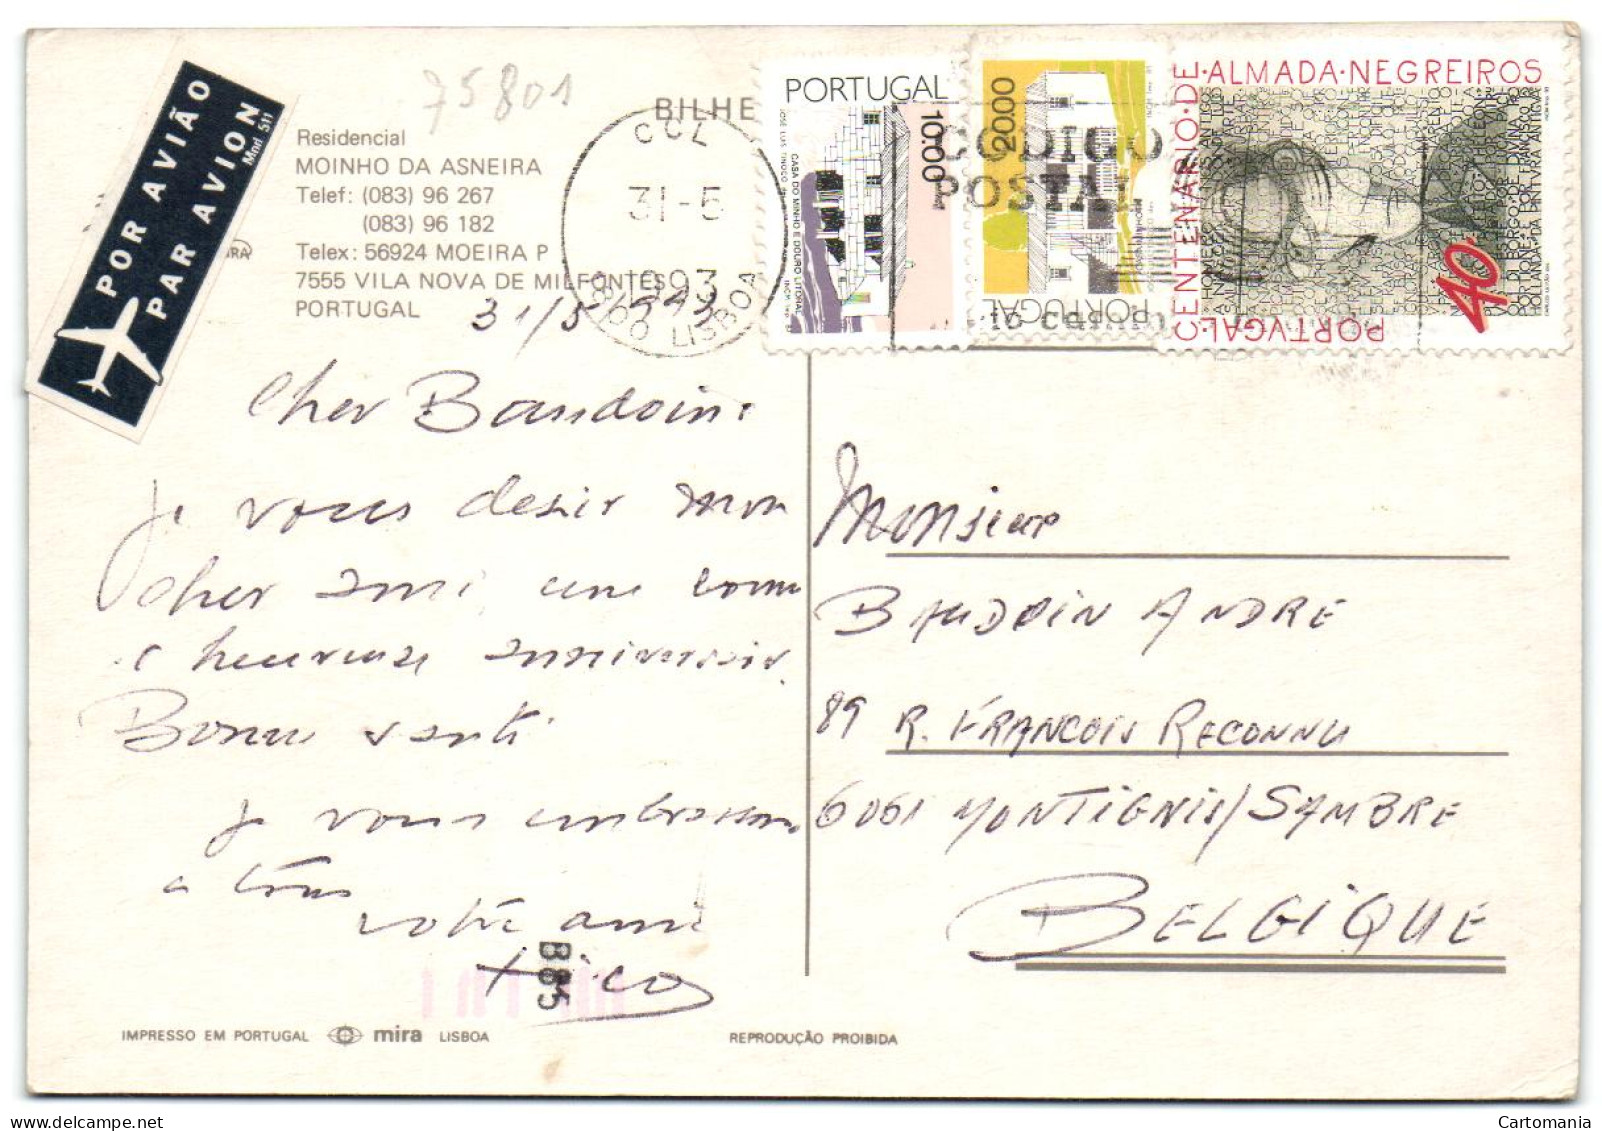 75801
POR AVIÃO
PAR AVION
Mod 511
BILHE
Residencial
MOINHO DA ASNEIRA
Telef: (083) 96 267
(083) 96 182
Telex: 56924 MOEIRA P
7555 VILA NOVA DE MILFONTES
PORTUGAL
CCL
31-5
1993
LISBOA
PORTUGAL
10.00
CASA DO MINHO E DOURO LITORAL
20.00
PORTUGAL
CÓDIGO
POSTAL
CENTENÁRIO·DE·ALMADA·NEGREIROS
PORTVGAL
40.
31/5/993
Cher Baudoin:
Je vous desir mon
cher ami, une bonne
e heureuse anniversair.
Bonne santé
Je vous embrassons
a tous
votre ami
Monsieur
BAUDOIN ANDRE
89 R. FRANCOIS RECONNU
6061 MONTIGNIS/SAMBRE
BELGIQUE
B 85
IMPRESSO EM PORTUGAL mira LISBOA
REPRODUÇÃO PROIBIDA
Cartomania